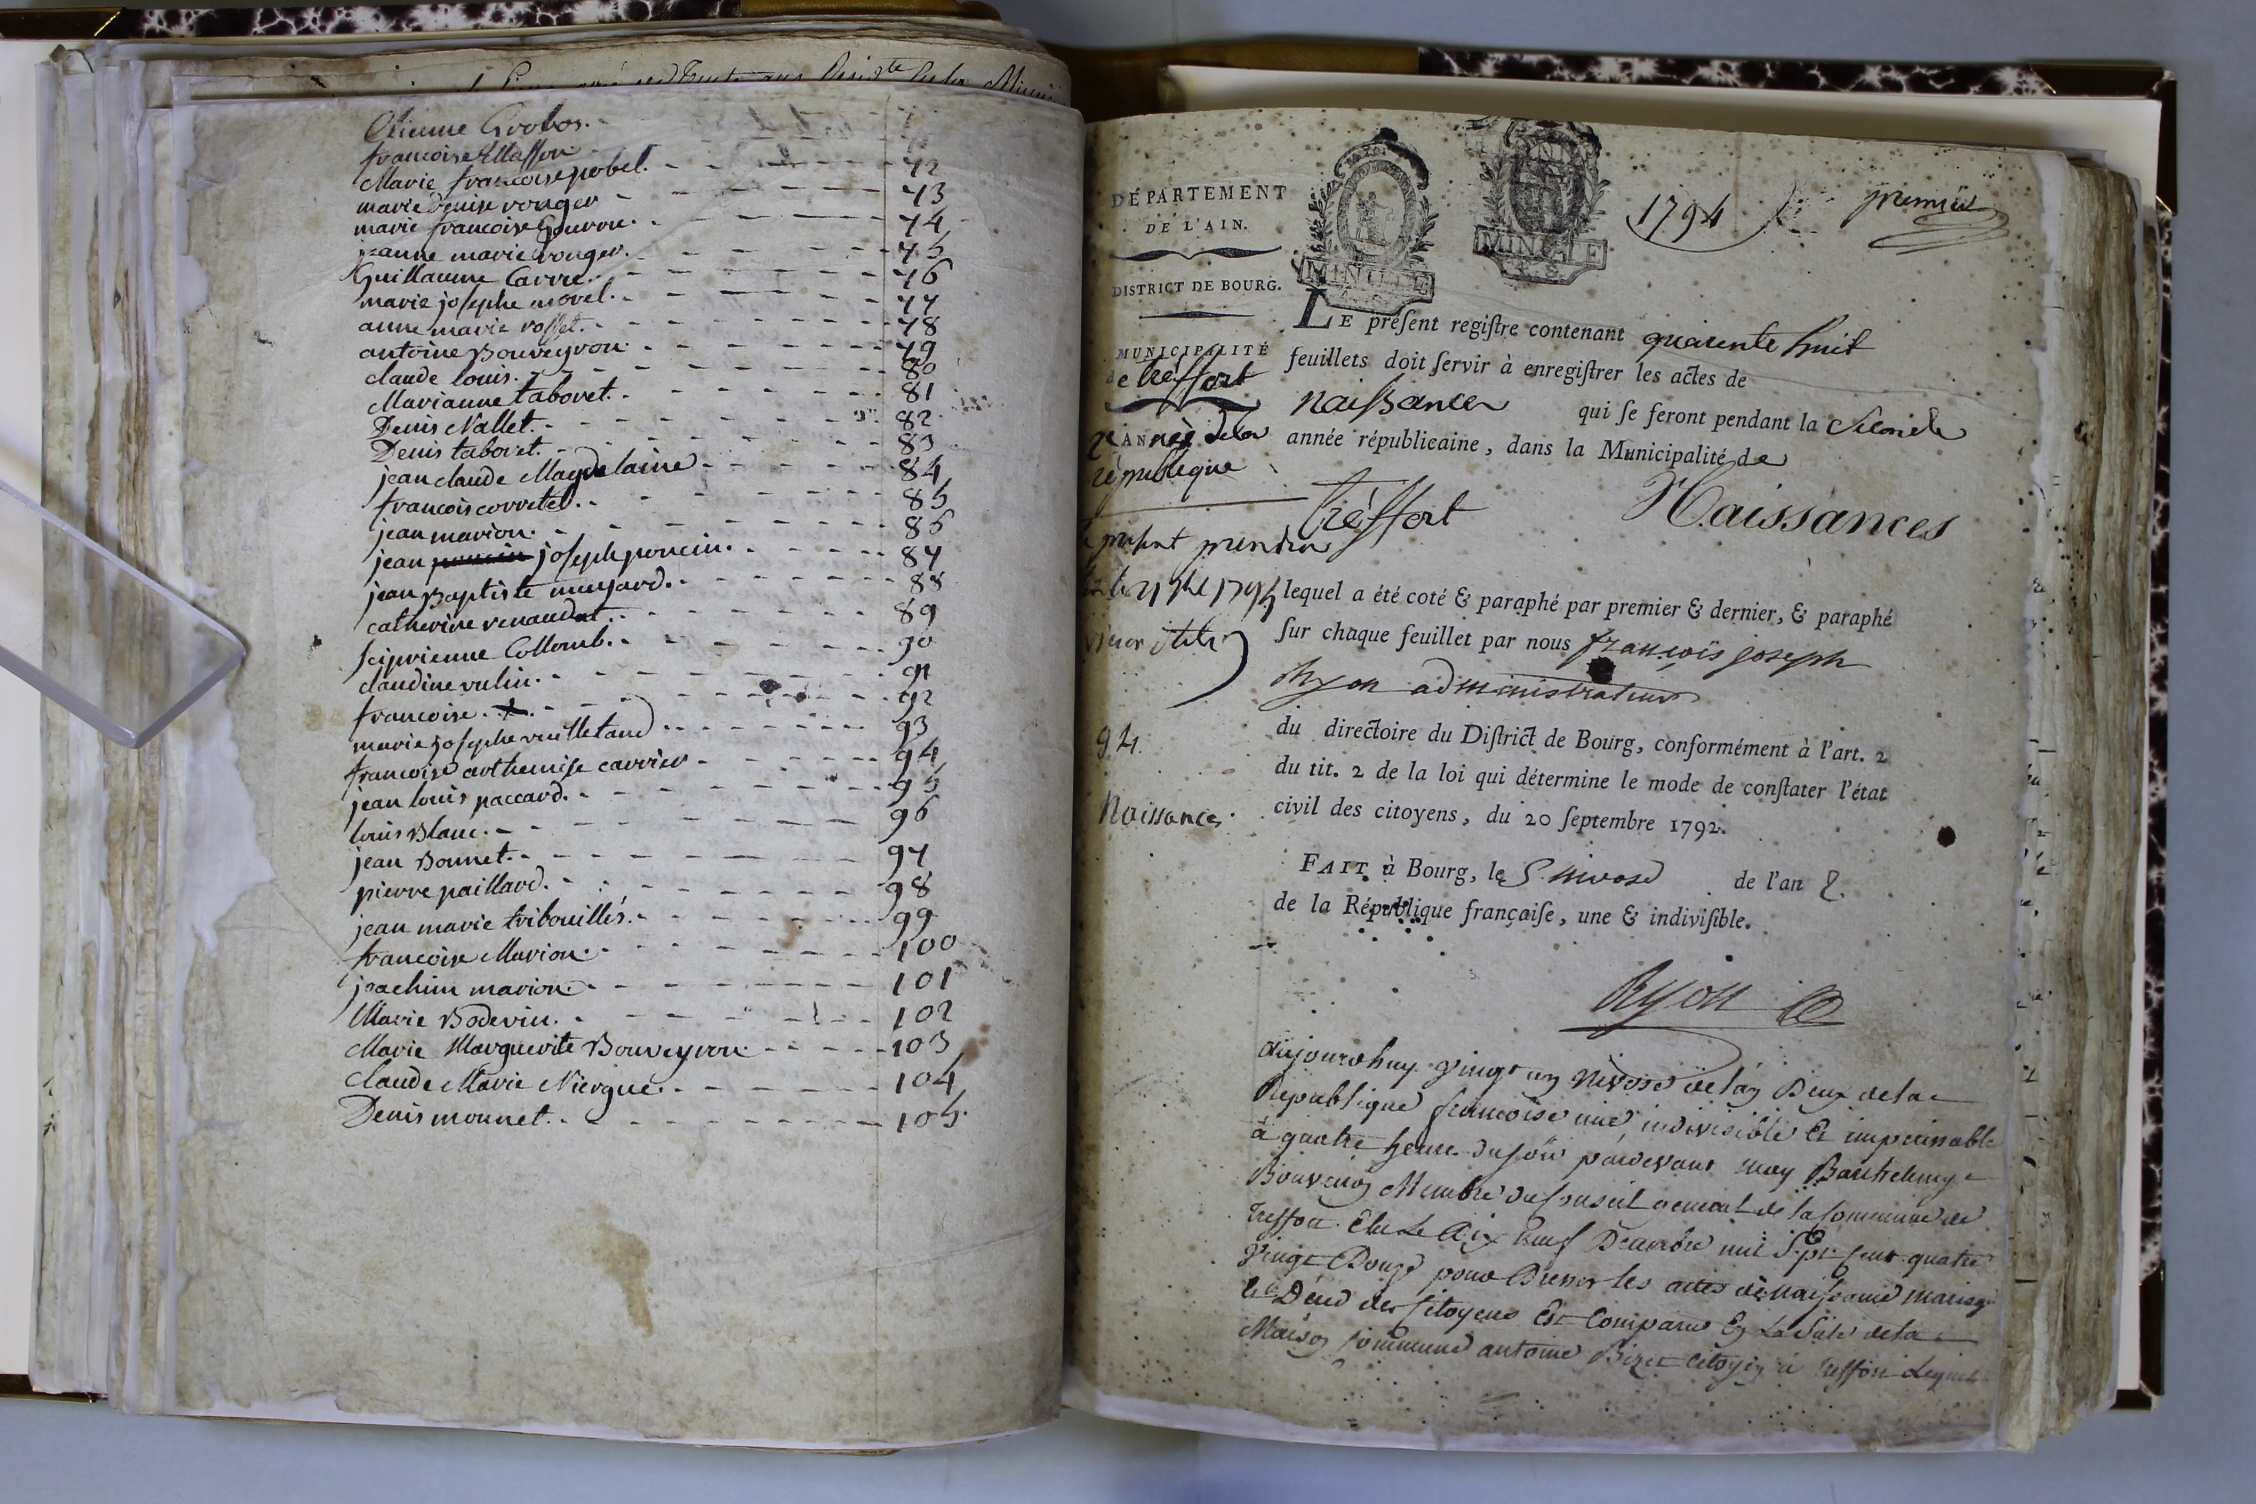 Etienne Grobos.
francoise Masson
Marie francoise pobel. 72
marie Denise rouger 73
marie francoise Gourou. 74
jeanne marie rouger. 75
Guillaume Carre. 76
marie josephe morel. 77
anne marie rosset. 78
antoine Bouveyron. 79
claude louis. 80
Marianne taboret. 81
Denis Nallet. 82
Denis taboret. 83
jean claude Magdelaine 84
francois corretel. 85
jean marion. 86
jean joseph poncin. 87
jean Baptiste munjard. 88
catherine renaudat. 89
sciprienne Collomb. 90
claudine vulin. 91
francoise. 92
marie josephe vuilletaud 93
francoise arthemise carrier 94
jean louis paccard. 95
louis Blanc. 96
jean Bonnet. 97
pierre paillard. 98
jean marie tribouillés. 99
francoise Marion. 100
joachim marion. 101
Marie Bodevin. 102
Marie Marguerite Bouveyron 103
Claude Marie Niergue. 104
Denis monnet. 105.
DÉPARTEMENT
DE L'AIN.
DISTRICT DE BOURG.
MUNICIPALITÉ
de tréffort
2e ANnée dela
république
94.
Naissances.
MINUTE
1794
premier
LE préſent regiſtre contenant quarente huit
feuillets doit ſervir à enregiſtrer les actes de
naissances qui ſe feront pendant la Seconde
année républicaine, dans la Municipalité de
tréffort
Naissances
lequel a été coté & paraphé par premier & dernier, & paraphé
ſur chaque feuillet par nous françois joseph
Ryon administrateur
du directoire du Diſtrict de Bourg, conformément à l'art. 2
du tit. 2 de la loi qui détermine le mode de conſtater l'état
civil des citoyens, du 20 ſeptembre 1792.
FAIT à Bourg, le 5 nivose de l'an 2.
de la République françaiſe, une & indiviſible.
Ryon
aujourdhuy vingt un Nivose de lan Deux dela
Republique francoise une indivisible Et imperissable
à quatre heure du soir pardevant moy Barthelemy
Bouveiron Membre du Conseil general de la Commune de
treffort Elu Le dix neuf Decembre mil Sept Cent quatre
Vingt Douze pour Dresser les actes de naissance mariage
et Déces des Citoyens Est Comparu En La Sale dela
Maison Commune antoine Bizet Citoyen à treffort Lequel